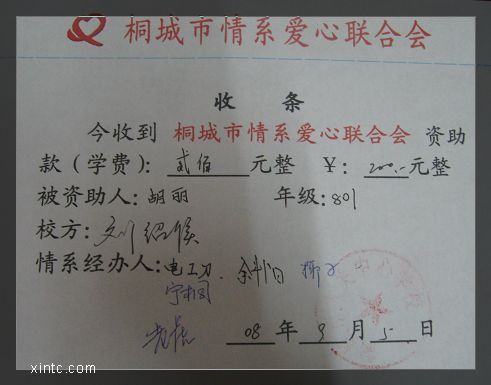 桐城市情系爱心联合会
收 条
今收到 桐城市情系爱心联合会 资助
款(学费): 贰佰 元整 ¥: 200.- 元整
被资助人: 胡丽 年级: 801
校方: 刘绍候
情系经办人: 电工刀、
08 年 9 月 5 日
xintc.com